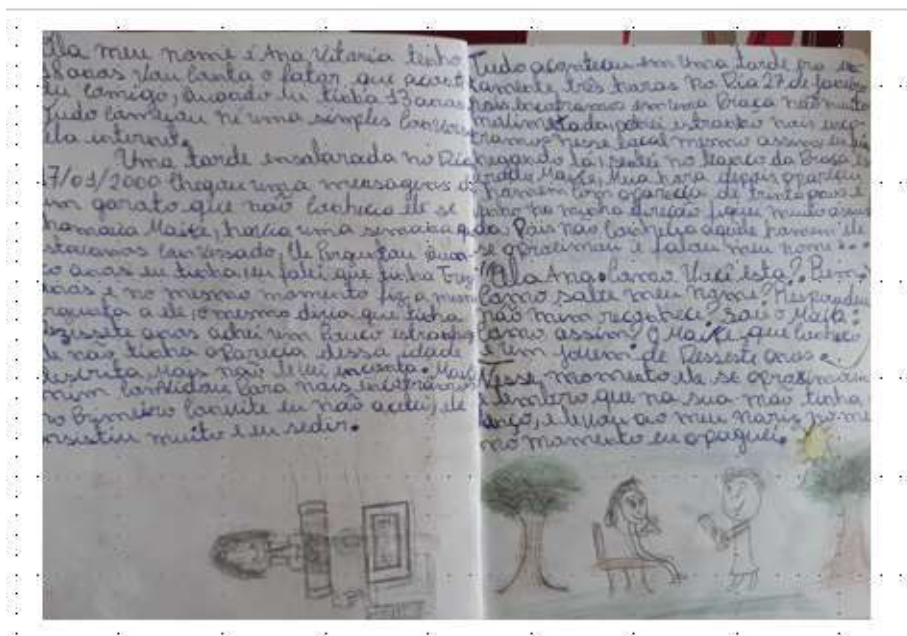 Ola meu nome é Ana Vitoria tenho
18 anos Vou conta o fator que acont
eu comigo, Quando eu tinha 13 anos
Tudo começou ni uma simples convers
ela internet.
Uma tarde ensolarada no Dia
17/01/2000 Chegou uma mensagem d
um garoto que não conhecia ele se
hamava Maike, havia uma semana q
stavamos conversado, Ele Perguntou quan
anos eu tinha, eu falei que tinha Treze
anos e no mesmo momento fiz a mesm
rgunta a ele, o mesmo dizia que tinha
ezessete anos achei um Pouco estranho
le não tinha aparecia dessa idade
descrita Mais não levei encanta. Maik
mim convidou Para nois encontrarmos
no Primeiro convite eu não aceitei, ele
nsistiu muito e eu sedir.
Tudo aconteceu em uma tarde pra
tamente três horas no Dia 27 de
nois encontramos em uma Praça não muito
malimetada, achei estranho nois
tramos nesse local mesmo assim eu
hegando lá, sentei no banco da Praça
Maike, Mua hora depois apareceu
homem com aparecia de trinta
na minha direção fiquei muito
da Pois não conhecia aquele homem ele
se aproximou e falou meu nome...
Ola Ana. Como Você esta? Bem
como sabe meu nome? Respondeu
não mim reconhece? sou o Maike.
como assim? O Maike que conheço
é um jovem de Dessesete anos.
Nesse momento ele se aproximou
e lembro que na sua mão tinha
enço, e levou ao meu nariz, no me
mo momento eu apaguei.